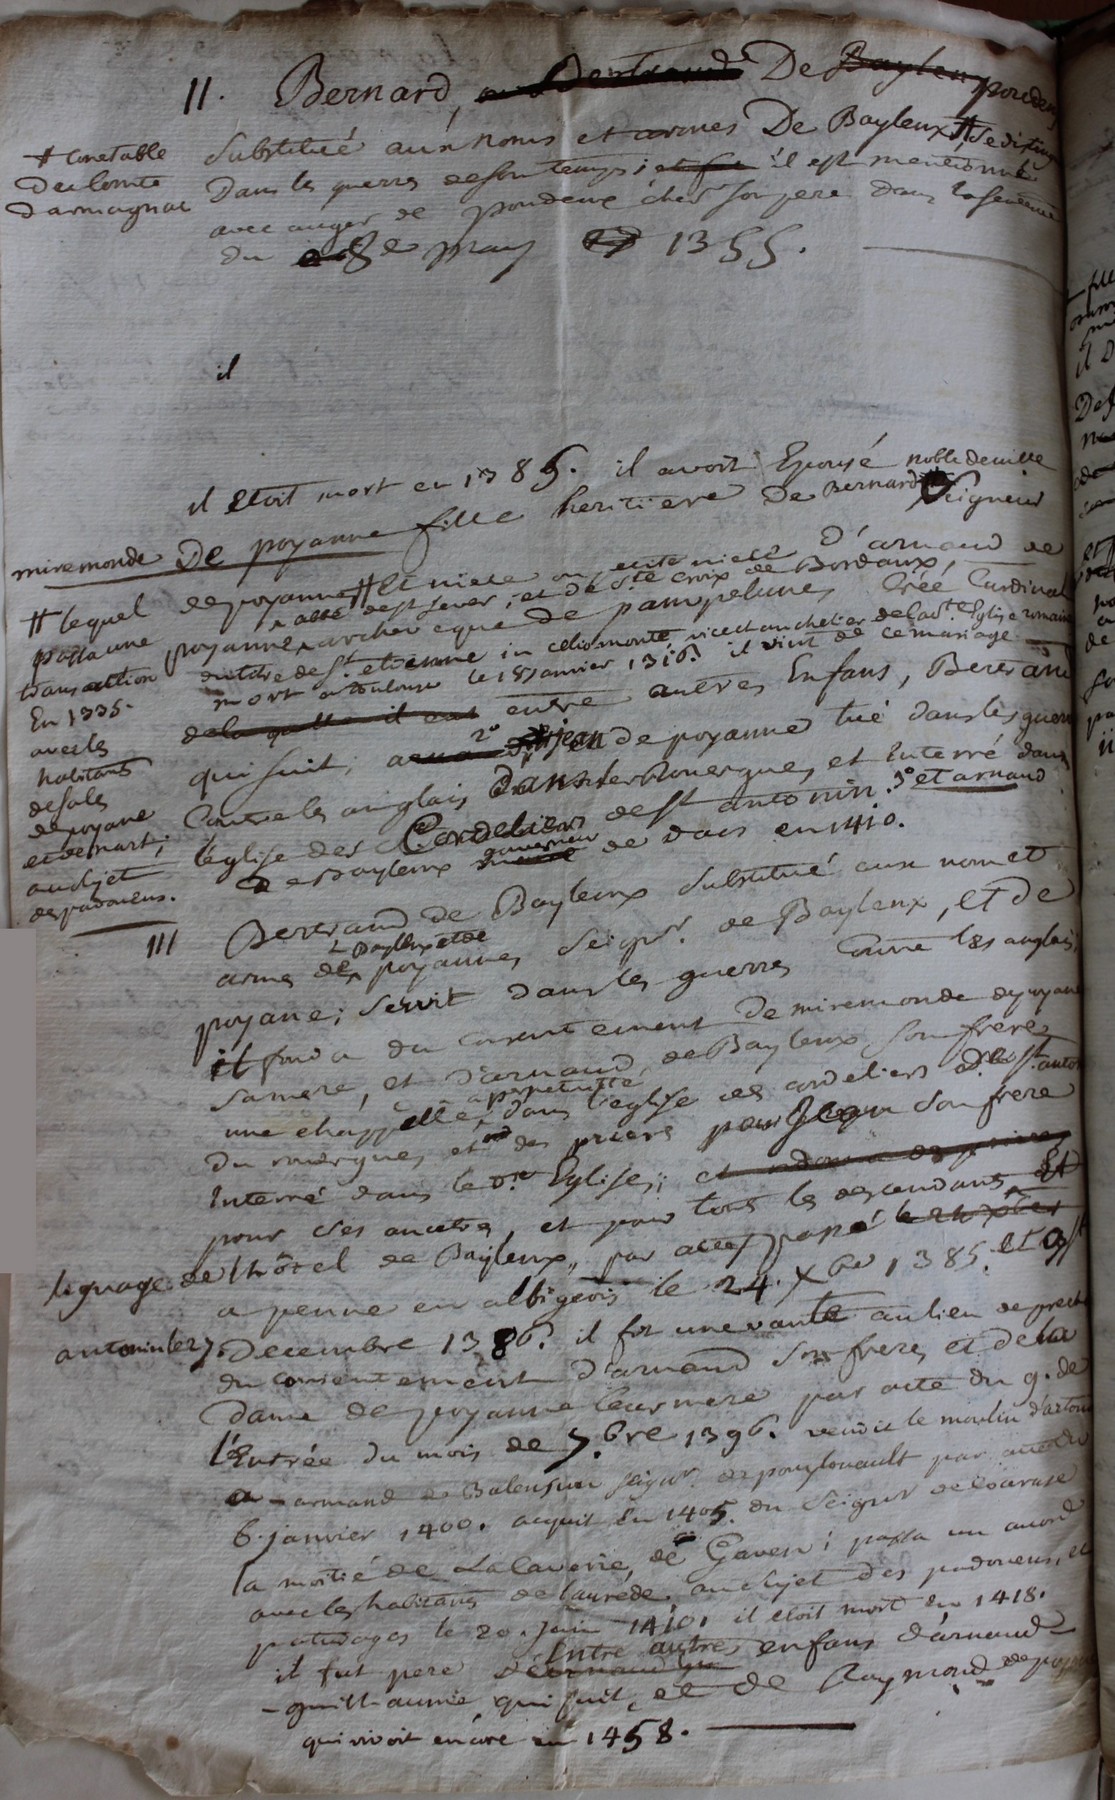 11. Bernard, De poudens
substitué aux noms et armes De Baylenx # se distingua
# Conetable
Du Comte
Darmagnac
Dans les guerres de son temps; il est mentionné
avec auger de poudenx cher son pere dans la sentence
du 8 de may 1355.
il
il etoit mort en 1385. il avoit Epousé noble demlle
miremonde De poyanne fille heritiere De Bernard Seigneur
de poyanne # Et niece ou petite niece D'arnaud de
abbé de st sever, et de ste Croix de Bordeaux,
poyanne archeveque de pampelune, Créé Cardinal
du titre de st etienne in celio monte, vicechanchelier de la ste Eglise romaine
mort a toulouse le 18 janvier 1316. il vint de ce mariage
# lequel
passa une
transaction
En 1335.
avec les
habitants
desales
de poyane
et de mart;
au sujet
des padouens.
de la quelle il eut entre autres Enfans, Bertrand
qui suit; 2º jean de poyanne tué dans les guerres
Contre les anglais dans le Rouergue, et Enterré dans
l'église des Cordeliers de st antonin. 3º et arnaud
de Baylenx gouverneur de dacs en 1410.
111 Bertrand de Baylenx substitué aux nom et
armes de Baylenx et de poyanne, Seigr. de Baylenx, et de
poyane; servit dans les guerres contre les anglais;
il fonda du consentement de miremonde de poyane
sa mere, et d'arnaud, de Baylenx son frere,
une chappelle a perpetuité dans l'eglise des cordeliers de st. antonin
du rouergue, et des prieres pour jean son frere
Enterré dans le dte Eglise; et
pour ses ancetres, et pour tous les descendants Et
lignage de l'hôtel de Baylenx, par actes passé le 24 xbre
a penne en albigeois le 24. xbre 1385. et a st
antonin le 27. Decembre 1386. il fit une vante au lieu de
du consentement d'arnaud son frere, et de la
dame de poyanne leur mere par acte du 9. de
l'Entrée du mois de 7.bre 1396. vendit le moulin d'
a armand de Balensun seigr. de par acte du
6. janvier 1400. acquit en 1405. du Seigr de Coarase
la moitié de Lalaverie, de Gaven; passa un acord
avec les habitans de laurède. au sujet des padouens, et
paturages le 20. juin 1410. il etoit mort en 1418.
il fut pere Entre autres enfans d'arnaud
-guillaume qui suit, et de Raymond de poyane
qui vivoit encore en 1458.